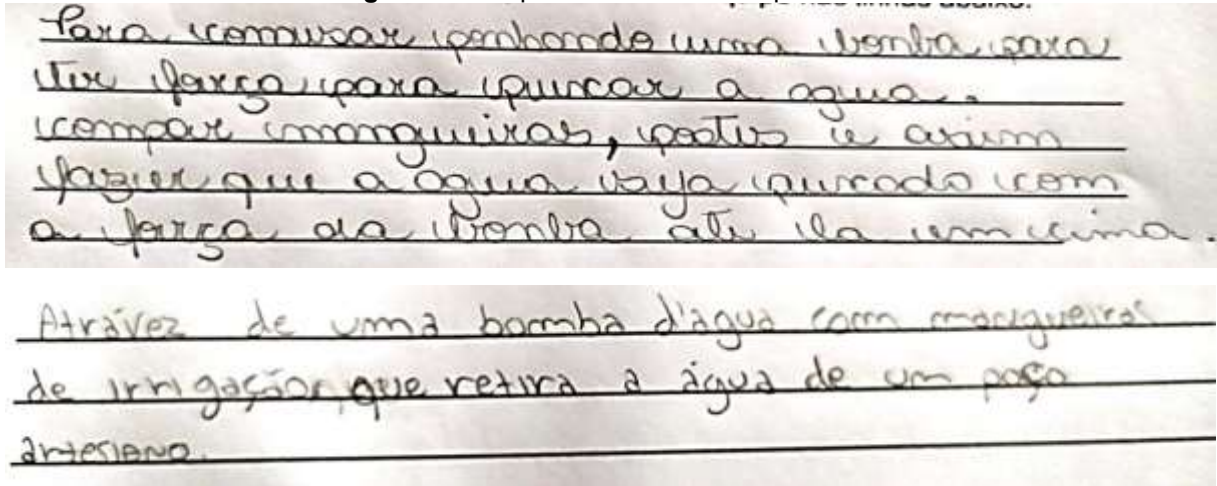 linhas abaixo.
Para comesar ponhando uma bonba para
ter força para puxcar a agua.
compar mangueiras, postes e asim
fazier que a agua vaya puxado com
a força da bonba ate la em cima.
Atrávez de uma bomba d'água com mangueiras
de irrigação, que retira a água de um poço
artesiano.